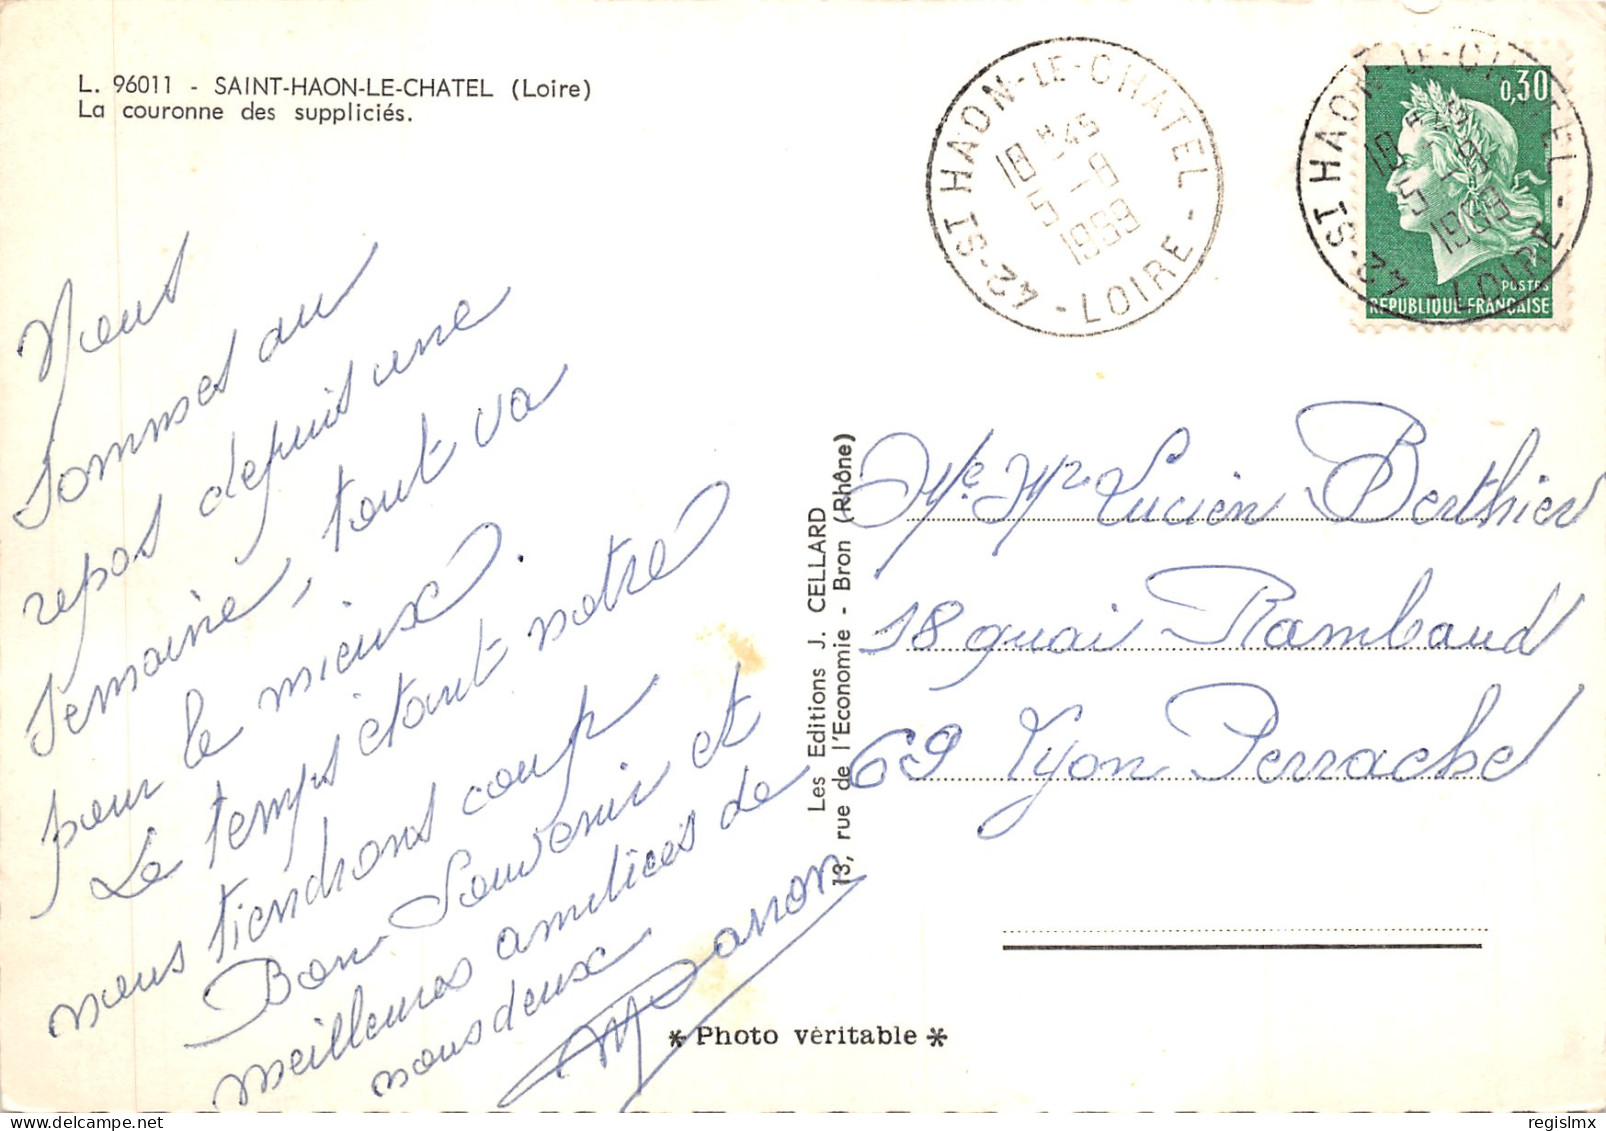 L. 96011 - SAINT-HAON-LE-CHATEL (Loire)
La couronne des suppliciés.
42-ST HAON-LE-CHATEL - LOIRE -
18 H 45
5 - 8
42-ST HAON-LE-CHATEL - LOIRE -
18 H 45
5 - 8
0,30
POSTES
REPUBLIQUE FRANÇAISE
Nous
sommes au
repos depuis une
semaine, tout va
pour le mieux.
Le temps étant notre
nous tiendrons coup
Bon Souvenir et
meilleures amitiés de
nous deux
Les Editions J. CELLARD
13, rue de l'Economie - Bron (Rhône)
Me Mr Lucien Berthier
18 quai Rambaud
69 Lyon Perrache
* Photo véritable *
www.delcampe.net
regislmx